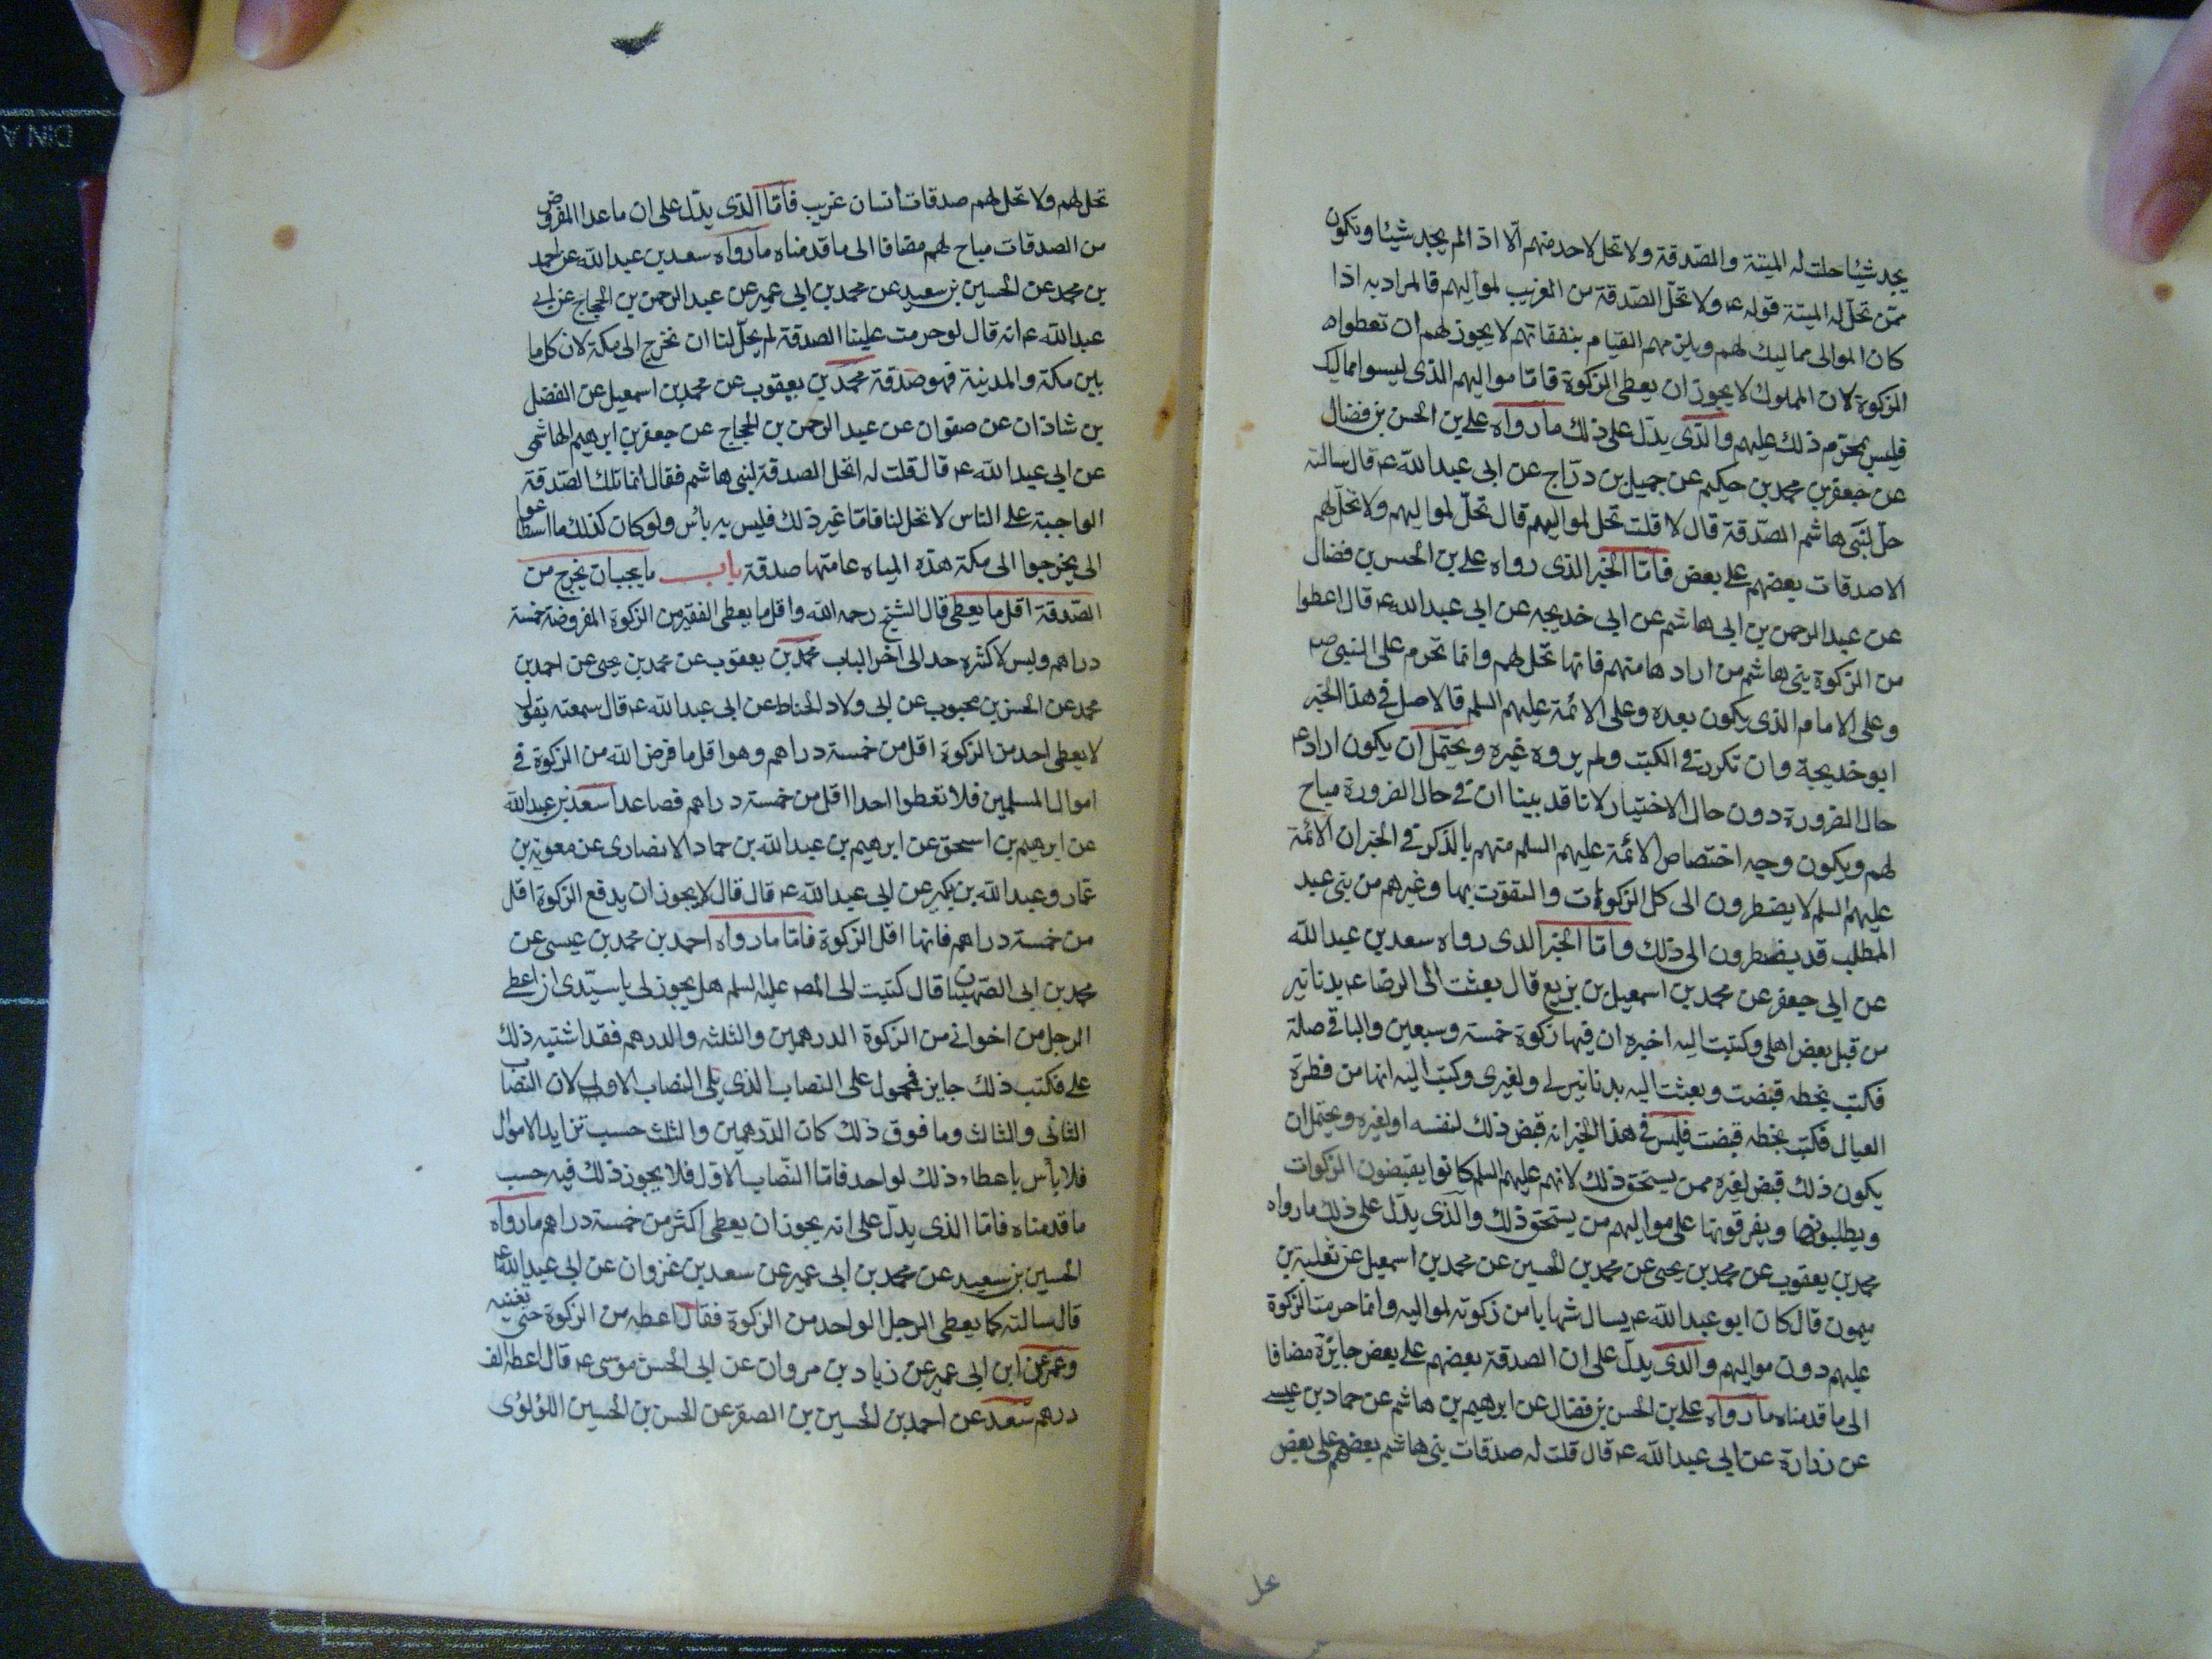 يجد شيئا حلت له الميتة والصّدقة ولا تحل لاحد منهم الّا اذا لم يجد شيئا وتكون
ممّن تحلّ له الميتة قوله ع ولا تحلّ الصّدقة من الغريب لمواليهم فالمراد به اذا
كان الموالى مماليك لهم ويلزمهم القيام بنفقاتهم لا يجوز لهم ان تعطواه
الزكوة لان المملوك لا يجوز ان يعطى الزكوة فامّا مواليهم الذى ليسوا مماليك
فليس بمحرّم ذلك عليهم والّذى يدلّ على ذلك ما رواه على بن الحسن بن فضال
عن جعفر بن محمد بن حكيم عن جميل بن درّاج عن ابى عبد الله ع قال سالته
حلّ لبنى هاشم الصّدقة قال لا قلت تحل لمواليهم قال تحلّ لمواليهم ولا تحلّ لهم
الا صدقات بعضهم على بعض فامّا الخبر الذى رواه على بن الحسن بن فضال
عن عبد الرحمن بن ابى هاشم عن ابى خديجه عن ابى عبد الله ع قال اعطوا
من الزكوة بنى هاشم من ارادها منهم فانها تحل لهم وانما تحرم على النبى ص
وعلى الامام الذى يكون بعده وعلى الائمة عليهم السلم فالاصل فى هذا الخبر
ابو خديجة وان تكرر فى الكتب ولم يروه غيره ويحتمل ان يكون اراد ع
حال الضرورة دون حال الاختيار لانا قد بينا ان فى حال الضرورة مباح
لهم ويكون وجه اختصاص الائمة عليهم السلم منهم بالذكر فى الخبر ان الائمة
عليهم السلم لا يضطرون الى كل الزكوات والتقوت بها وغيرهم من بنى عبد
المطلب قد يضطرون الى ذلك وامّا الخبر الذى رواه سعد بن عبد الله
عن ابى جعفر عن محمد بن اسمعيل بن بزيع قال بعثت الى الرضا ع بدنانير
من قبل بعض اهلى وكتبت اليه اخبره ان فيها زكوة خمسة وسبعين والباقى صلة
فكتب بخطه قبضت وبعثت اليه بدنانير لى ولغيرى وكتبت اليه انها من فطرة
العيال فكتب بخطه قبضت فليس فى هذا الخبر انه قبض ذلك لنفسه او لغيره ويحتمل ان
يكون ذلك قبض لغيره ممن يستحق ذلك لانهم عليهم السلم كانوا يقبضون الزكوات
ويطلبونها ويفرقونها على مواليهم من يستحق ذلك والّذى يدلّ على ذلك ما رواه
محمد بن يعقوب عن محمد بن يحيى عن محمد بن الحسين عن محمد بن اسمعيل عن ثعلبة بن
ميمون قال كان ابو عبد الله ع يسال شهابا من زكوته لمواليه وانما حرمت الزكوة
عليهم دون مواليهم والذى يدلّ على ان الصدقة بعضهم على بعض جايزة مضافا
الى ما قدمناه ما رواه على بن الحسن بن فضال عن ابرهيم بن هاشم عن حماد بن عيسى
عن زرارة عن ابى عبد الله ع قال قلت له صدقات بنى هاشم بعضهم على بعض
تحل
تحل لهم ولا تحل لهم صدقات انسان غريب فامّا الّذى يدّل على ان ما عدا المفروض
من الصدقات مباح لهم مضافا الى ما قدمناه ما رواه سعد بن عبد الله عن احمد
بن محمد عن الحسين بن سعيد عن محمد بن ابى عمير عن عبد الرحمن بن الحجاج عن ابى
عبد الله ع انه قال لو حرمت علينا الصدقة لم يحلّ لنا ان نخرج الى مكة لان كل ما
بين مكة والمدينة فهو صدقة محمد بن يعقوب عن محمد بن اسمعيل عن الفضل
بن شاذان عن صفوان عن عبد الرحمن بن الحجاج عن جعفر بن ابرهيم الهاشمى
عن ابى عبد الله ع قال قلت له اتحل الصدقة لبنى هاشم فقال انما تلك الصّدقة
الواجبة على الناس لا تحل لنا فامّا غير ذلك فليس به باس ولو كان كذلك ما اسطاعوا
الى يخرجوا الى مكة هذه المياه عامتها صدقة باب ما يجب ان يخرج من
الصّدقة اقل ما يعطى قال الشيخ رحمه الله واقل ما يعطى الفقير من الزكوة المفروضة خمسة
دراهم وليس لاكثره حد الى آخر الباب محمد بن يعقوب عن محمد بن يحيى عن احمد بن
محمد عن الحسن بن محبوب عن ابى ولاد الحناط عن ابى عبد الله ع قال سمعته يقول
لا يعطى احد من الزكوة اقل من خمسة دراهم وهو اقل ما فرض الله من الزكوة فى
اموال المسلمين فلا تعطوا احدا اقل من خمسة دراهم فصاعدا سعد بن عبد الله
عن ابرهيم بن اسحق عن ابرهيم بن عبد الله بن حماد الانصارى عن معوية بن
عمّار وعبد الله بن بكير عن ابى عبد الله ع قال قال لا يجوز ان يدفع الزكوة اقل
من خمسة دراهم فانها اقل الزكوة فامّا ما رواه احمد بن محمد بن عيسى عن
محمد بن ابى الصّهبان قال كتبت الى الصه عليه السلم هل يجوز لى يا سيّدى ان اعطى
الرجل من اخوانى من الزكوة الدرهمين والثلثه والدرهم فقد اشتبه ذلك
على فكتب ذلك جايز فمحمول على النصاب الذى يلى النصاب الاول لان النصاب
الثانى والثالث وما فوق ذلك كان الدّرهمين والثلث حسب تزايد الاموال
فلا باس باعطاء ذلك لواحد فامّا النّصاب الاول فلا يجوز ذلك فيه حسب
ما قدمناه فامّا الذى يدلّ على انه يجوز ان يعطى اكثر من خمسة دراهم ما رواه
الحسين بن سعيد عن محمد بن ابى عمير عن سعد بن غزوان عن ابى عبد الله ع
قال سالته كم يعطى الرجل الواحد من الزكوة فقال اعطه من الزكوة حتى تغنيه
وعنه عن ابن ابى عمير عن زياد بن مروان عن ابى الحسن موسى ع قال اعطه الف
درهم سعد عن احمد بن الحسين بن الصقر عن الحسن بن الحسين اللؤلؤى